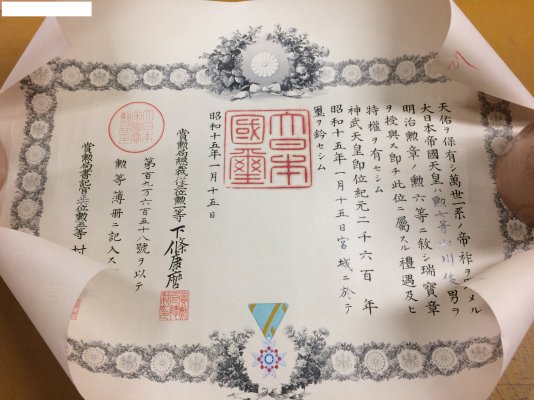 天佑ヲ保有シ萬世一系ノ帝祚ヲメル
大日本帝國天皇ハ勲七等山川俊男ヲ
明治勲章ノ勲六等ニ敍シ瑞寶章
ヲ授與ス即チ此位ニ屬スル禮遇及ヒ
特權ヲ有セシム
神武天皇即位紀元二千六百年
昭和十五年一月十五日宮城ニ於テ
璽ヲ鈐セシム
大日本國璽
昭和十五年一月十五日
賞勲局總裁位勲一等 下條康麿
第百九万六百五十八號ヲ以テ
勲等簿册ニ記入ス
賞勲局書記官位勲等 村